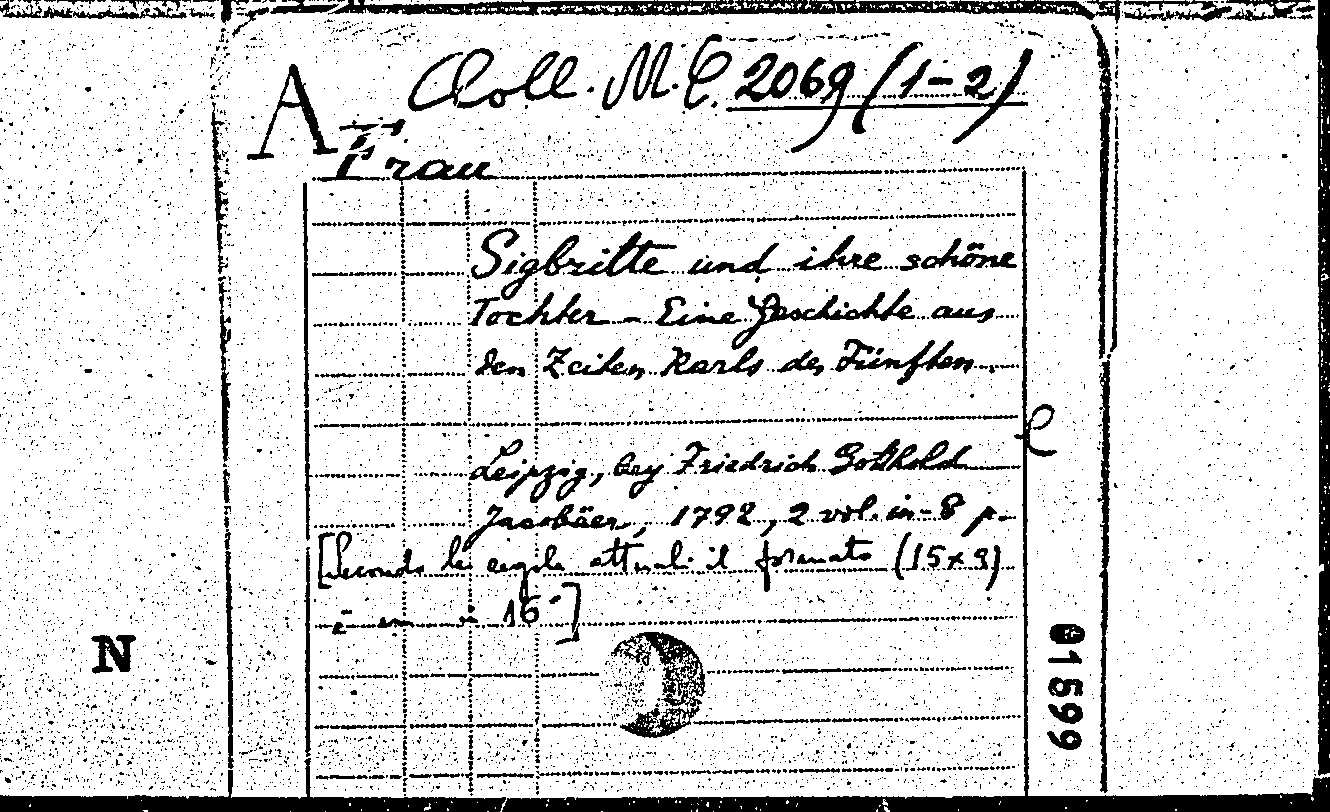 Coll. M.C. 2069 (1-2)
A
Frau
Sigbritte und ihre schöne
Tochter - Eine Geschichte aus
den Zeiten Karls des Fünften.
Leipzig, bey Friedrich Gotthold
Jacobäer, 1792, 2 vol. in-8 p.
[Secondo le regole attuali il formato (15x9)
è in 16°]
N
01599